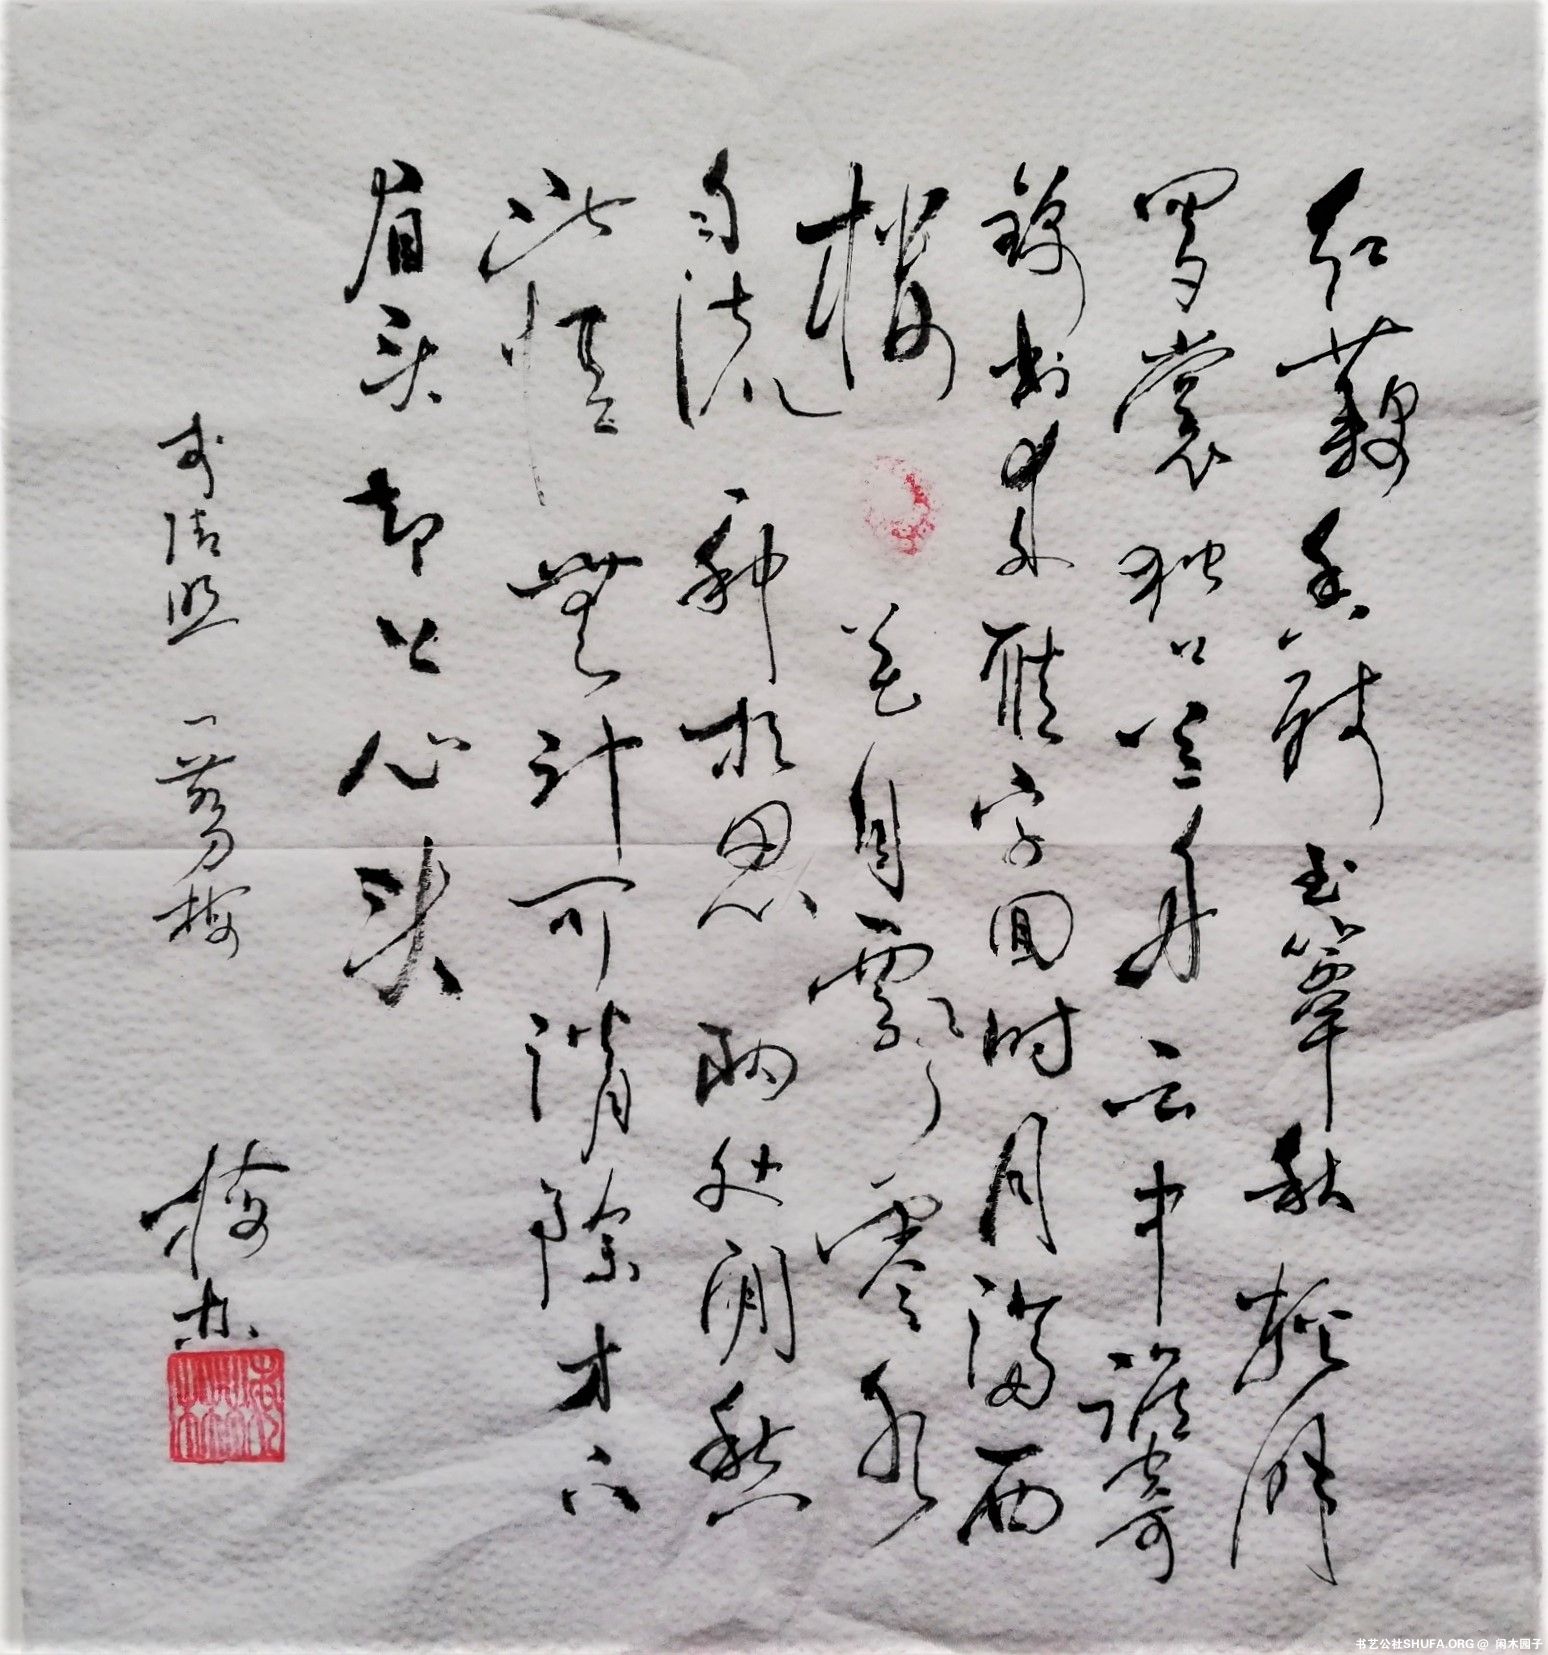 红藕香残玉簟秋轻解
罗裳独上兰舟云中谁寄
锦书来雁字回时月满西
楼 花自飘零水
自流 一种相思两处闲愁
此情無计可消除才下
眉头却上心头
李清照 一剪梅
梅
书艺公社SHUFA.ORG @ 闲木园子